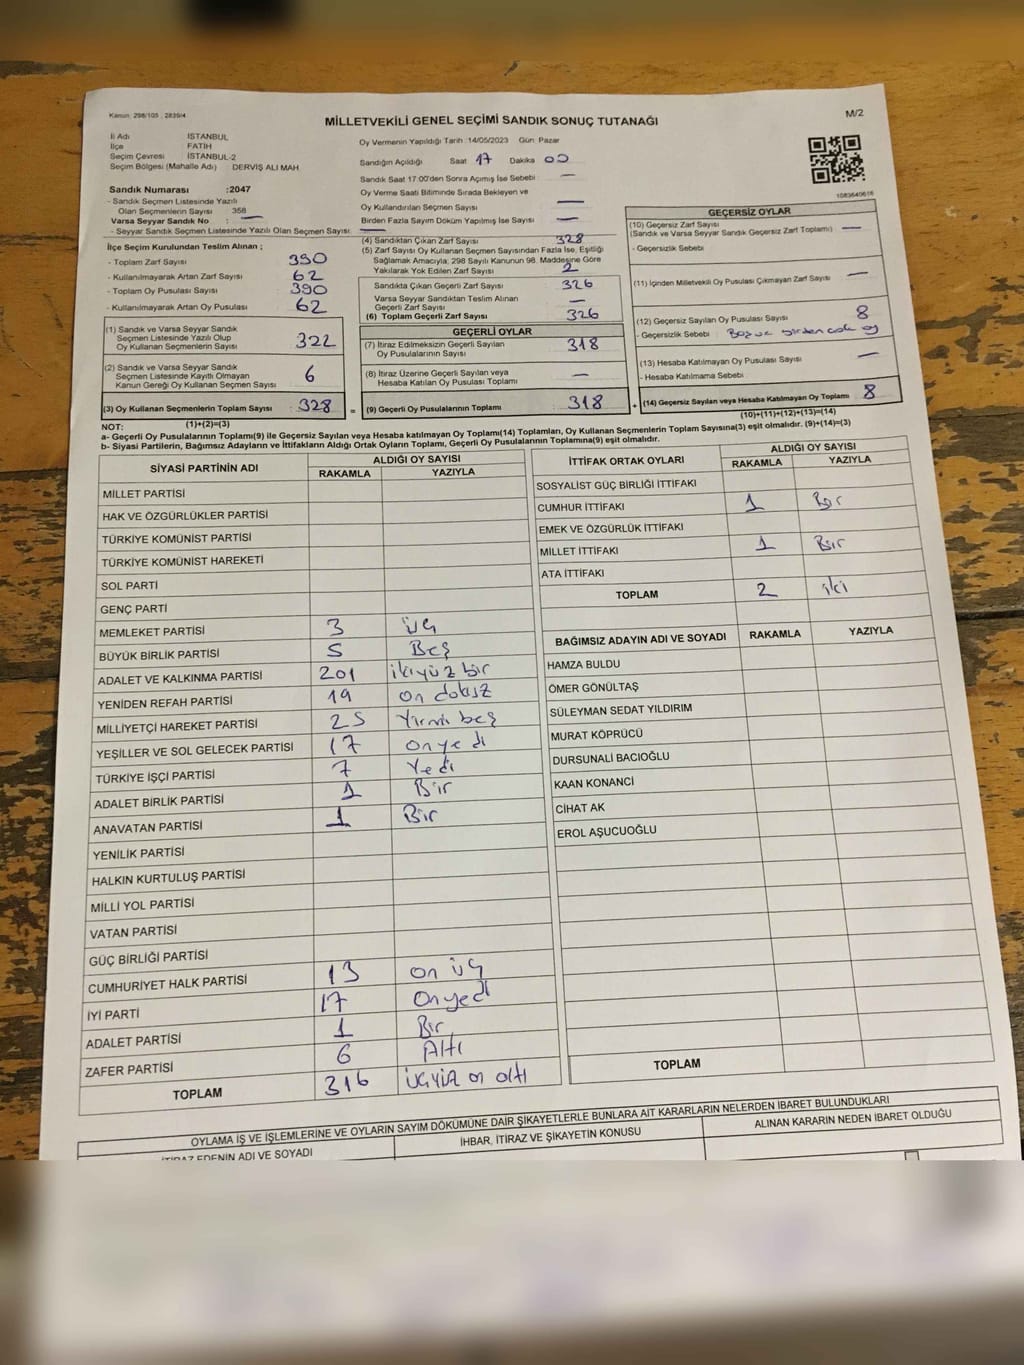 Kanun: 298/105 , 2839/4
MİLLETVEKİLİ GENEL SEÇİMİ SANDIK SONUÇ TUTANAĞI
M/2
İl Adı İSTANBUL
İlçe FATİH
Seçim Çevresi İSTANBUL-2
Seçim Bölgesi (Mahalle Adı) DERVİŞ ALİ MAH.
Sandık Numarası :2047
- Sandık Seçmen Listesinde Yazılı
Olan Seçmenlerin Sayısı 358
Varsa Seyyar Sandık No : —
- Seyyar Sandık Seçmen Listesinde Yazılı Olan Seçmen Sayısı: —
Oy Vermenin Yapıldığı Tarih :14/05/2023 Gün: Pazar
Sandığın Açıldığı Saat 17 Dakika 00
Sandık Saat 17:00'den Sonra Açımış İse Sebebi : —
Oy Verme Saati Bitiminde Sırada Bekleyen ve
Oy Kullandırılan Seçmen Sayısı —
Birden Fazla Sayım Döküm Yapılmış İse Sayısı —
1083640616
İlçe Seçim Kurulundan Teslim Alınan ;
- Toplam Zarf Sayısı 390
- Kullanılmayarak Artan Zarf Sayısı 62
- Toplam Oy Pusulası Sayısı 390
- Kullanılmayarak Artan Oy Pusulası 62
(1) Sandık ve Varsa Seyyar Sandık
Seçmen Listesinde Yazılı Olup
Oy Kullanan Seçmenlerin Sayısı 322
(2) Sandık ve Varsa Seyyar Sandık
Seçmen Listesinde Kayıtlı Olmayan
Kanun Gereği Oy Kullanan Seçmen Sayısı 6
(3) Oy Kullanan Seçmenlerin Toplam Sayısı 328
(1)+(2)=(3)
(4) Sandıktan Çıkan Zarf Sayısı 328
(5) Zarf Sayısı Oy Kullanan Seçmen Sayısından Fazla İse, Eşitliği
Sağlamak Amacıyla; 298 Sayılı Kanunun 98. Maddesine Göre
Yakılarak Yok Edilen Zarf Sayısı 2
Sandıkta Çıkan Geçerli Zarf Sayısı 326
Varsa Seyyar Sandıktan Teslim Alınan
Geçerli Zarf Sayısı —
(6) Toplam Geçerli Zarf Sayısı 326
GEÇERLİ OYLAR
(7) İtiraz Edilmeksizin Geçerli Sayılan
Oy Pusulalarının Sayısı 318
(8) İtiraz Üzerine Geçerli Sayılan veya
Hesaba Katılan Oy Pusulası Toplamı —
= (9) Geçerli Oy Pusulalarının Toplamı 318
GEÇERSİZ OYLAR
(10) Geçersiz Zarf Sayısı
(Sandık ve Varsa Seyyar Sandık Geçersiz Zarf Toplamı) —
- Geçersizlik Sebebi
(11) İçinden Milletvekili Oy Pusulası Çıkmayan Zarf Sayısı —
(12) Geçersiz Sayılan Oy Pusulası Sayısı 8
- Geçersizlik Sebebi
(13) Hesaba Katılmayan Oy Pusulası Sayısı —
- Hesaba Katılmama Sebebi
+ (14) Geçersiz Sayılan veya Hesaba Katılmayan Oy Toplamı 8
(10)+(11)+(12)+(13)=(14)
NOT:
a- Geçerli Oy Pusulalarının Toplamı(9) ile Geçersiz Sayılan veya Hesaba katılmayan Oy Toplamı(14) Toplamları, Oy Kullanan Seçmenlerin Toplam Sayısına(3) eşit olmalıdır. (9)+(14)=(3)
b- Siyasi Partilerin, Bağımsız Adayların ve İttifakların Aldığı Ortak Oyların Toplamı, Geçerli Oy Pusulalarının Toplamına(9) eşit olmalıdır.
SİYASİ PARTİNİN ADI ALDIĞI OY SAYISI
RAKAMLA YAZIYLA
MİLLET PARTİSİ
HAK VE ÖZGÜRLÜKLER PARTİSİ
TÜRKİYE KOMÜNİST PARTİSİ
TÜRKİYE KOMÜNİST HAREKETİ
SOL PARTİ
GENÇ PARTİ
MEMLEKET PARTİSİ 3 üç
BÜYÜK BİRLİK PARTİSİ 5 Beş
ADALET VE KALKINMA PARTİSİ 201 ikiyüz bir
YENİDEN REFAH PARTİSİ 19 on dokuz
MİLLİYETÇİ HAREKET PARTİSİ 25 Yirmi beş
YEŞİLLER VE SOL GELECEK PARTİSİ 17 onyedi
TÜRKİYE İŞÇİ PARTİSİ 7 Yedi
ADALET BİRLİK PARTİSİ 1 Bir
ANAVATAN PARTİSİ 1 Bir
YENİLİK PARTİSİ
HALKIN KURTULUŞ PARTİSİ
MİLLİ YOL PARTİSİ
VATAN PARTİSİ
GÜÇ BİRLİĞİ PARTİSİ
CUMHURİYET HALK PARTİSİ 13 on üç
İYİ PARTİ 17 Onyedi
ADALET PARTİSİ 1 Bir
ZAFER PARTİSİ 6 Altı
TOPLAM 316 üçyüz on altı
İTTİFAK ORTAK OYLARI ALDIĞI OY SAYISI
RAKAMLA YAZIYLA
SOSYALİST GÜÇ BİRLİĞİ İTTİFAKI
CUMHUR İTTİFAKI 1 Bir
EMEK VE ÖZGÜRLÜK İTTİFAKI
MİLLET İTTİFAKI 1 Bir
ATA İTTİFAKI
TOPLAM 2 iki
BAĞIMSIZ ADAYIN ADI VE SOYADI RAKAMLA YAZIYLA
HAMZA BULDU
ÖMER GÖNÜLTAŞ
SÜLEYMAN SEDAT YILDIRIM
MURAT KÖPRÜCÜ
DURSUNALİ BACIOĞLU
KAAN KONANCİ
CİHAT AK
EROL AŞUCUOĞLU
TOPLAM
OYLAMA İŞ VE İŞLEMLERİNE VE OYLARIN SAYIM DÖKÜMÜNE DAİR ŞİKAYETLERLE BUNLARA AİT KARARLARIN NELERDEN İBARET BULUNDUKLARI
İTİRAZ EDENİN ADI VE SOYADI İHBAR, İTİRAZ VE ŞİKAYETİN KONUSU ALINAN KARARIN NEDEN İBARET OLDUĞU